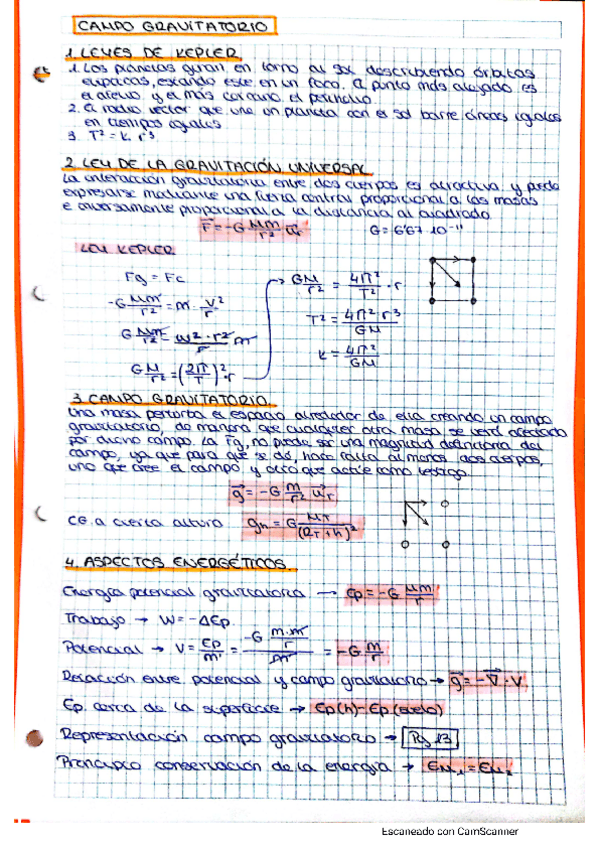 CAMPO GRAVITATORIO
1. LEYES DE KEPLER.
1. Los planetas giran en torno al sol describiendo órbitas
elípticas, estando este en un foco. El punto más alejado es
el afelio y el más cercano el perihelio.
2. El radio vector que une un planeta con el sol barre áreas iguales
en tiempos iguales
3. T² = k r³
2. LEY DE LA GRAVITACIÓN UNIVERSAL
La interacción gravitatoria entre dos cuerpos es atractiva y puede
expresarse mediante una fuerza central proporcional a las masas
e inversamente proporcional a la distancia al cuadrado
F = -G Mm/r² ur G = 6'67·10⁻¹¹
LEY KEPLER
Fg = Fc
-G Mm/r² = m · v²/r
G Mm/r² = w² · r²/r m
G M/r² = (2π/T)² · r
GM/r² = 4π²/T² · r
T² = 4π² r³/GM
k = 4π²/GM
3. CAMPO GRAVITATORIO.
Una masa perturba el espacio alrededor de ella creando un campo
gravitatorio, de manera que cualquier otra masa se verá afectada
por dicho campo. La Fg, no puede ser una magnitud definitoria del
campo, ya que para que se dé, hace falta al menos dos cuerpos,
uno que cree el campo, y otro que actúe como testigo.
g = -G m/r² ur
CG. a cierta altura gh = G MT/(RT+h)²
4. ASPECTOS ENERGÉTICOS.
Energía potencial gravitatoria → Ep = -G Mm/r
Trabajo → W = -ΔEp
Potencial → V = Ep/m = -G m·m/r / m = -G m/r
Relación entre potencial y campo gravitatorio → g = -∇ · V
Ep. cerca de la superficie → Ep(h) - Ep(suelo)
Representación campo gravitatorio → Pg 13
Principio conservación de la energía → EM₁ = EM₂
Escaneado con CamScanner